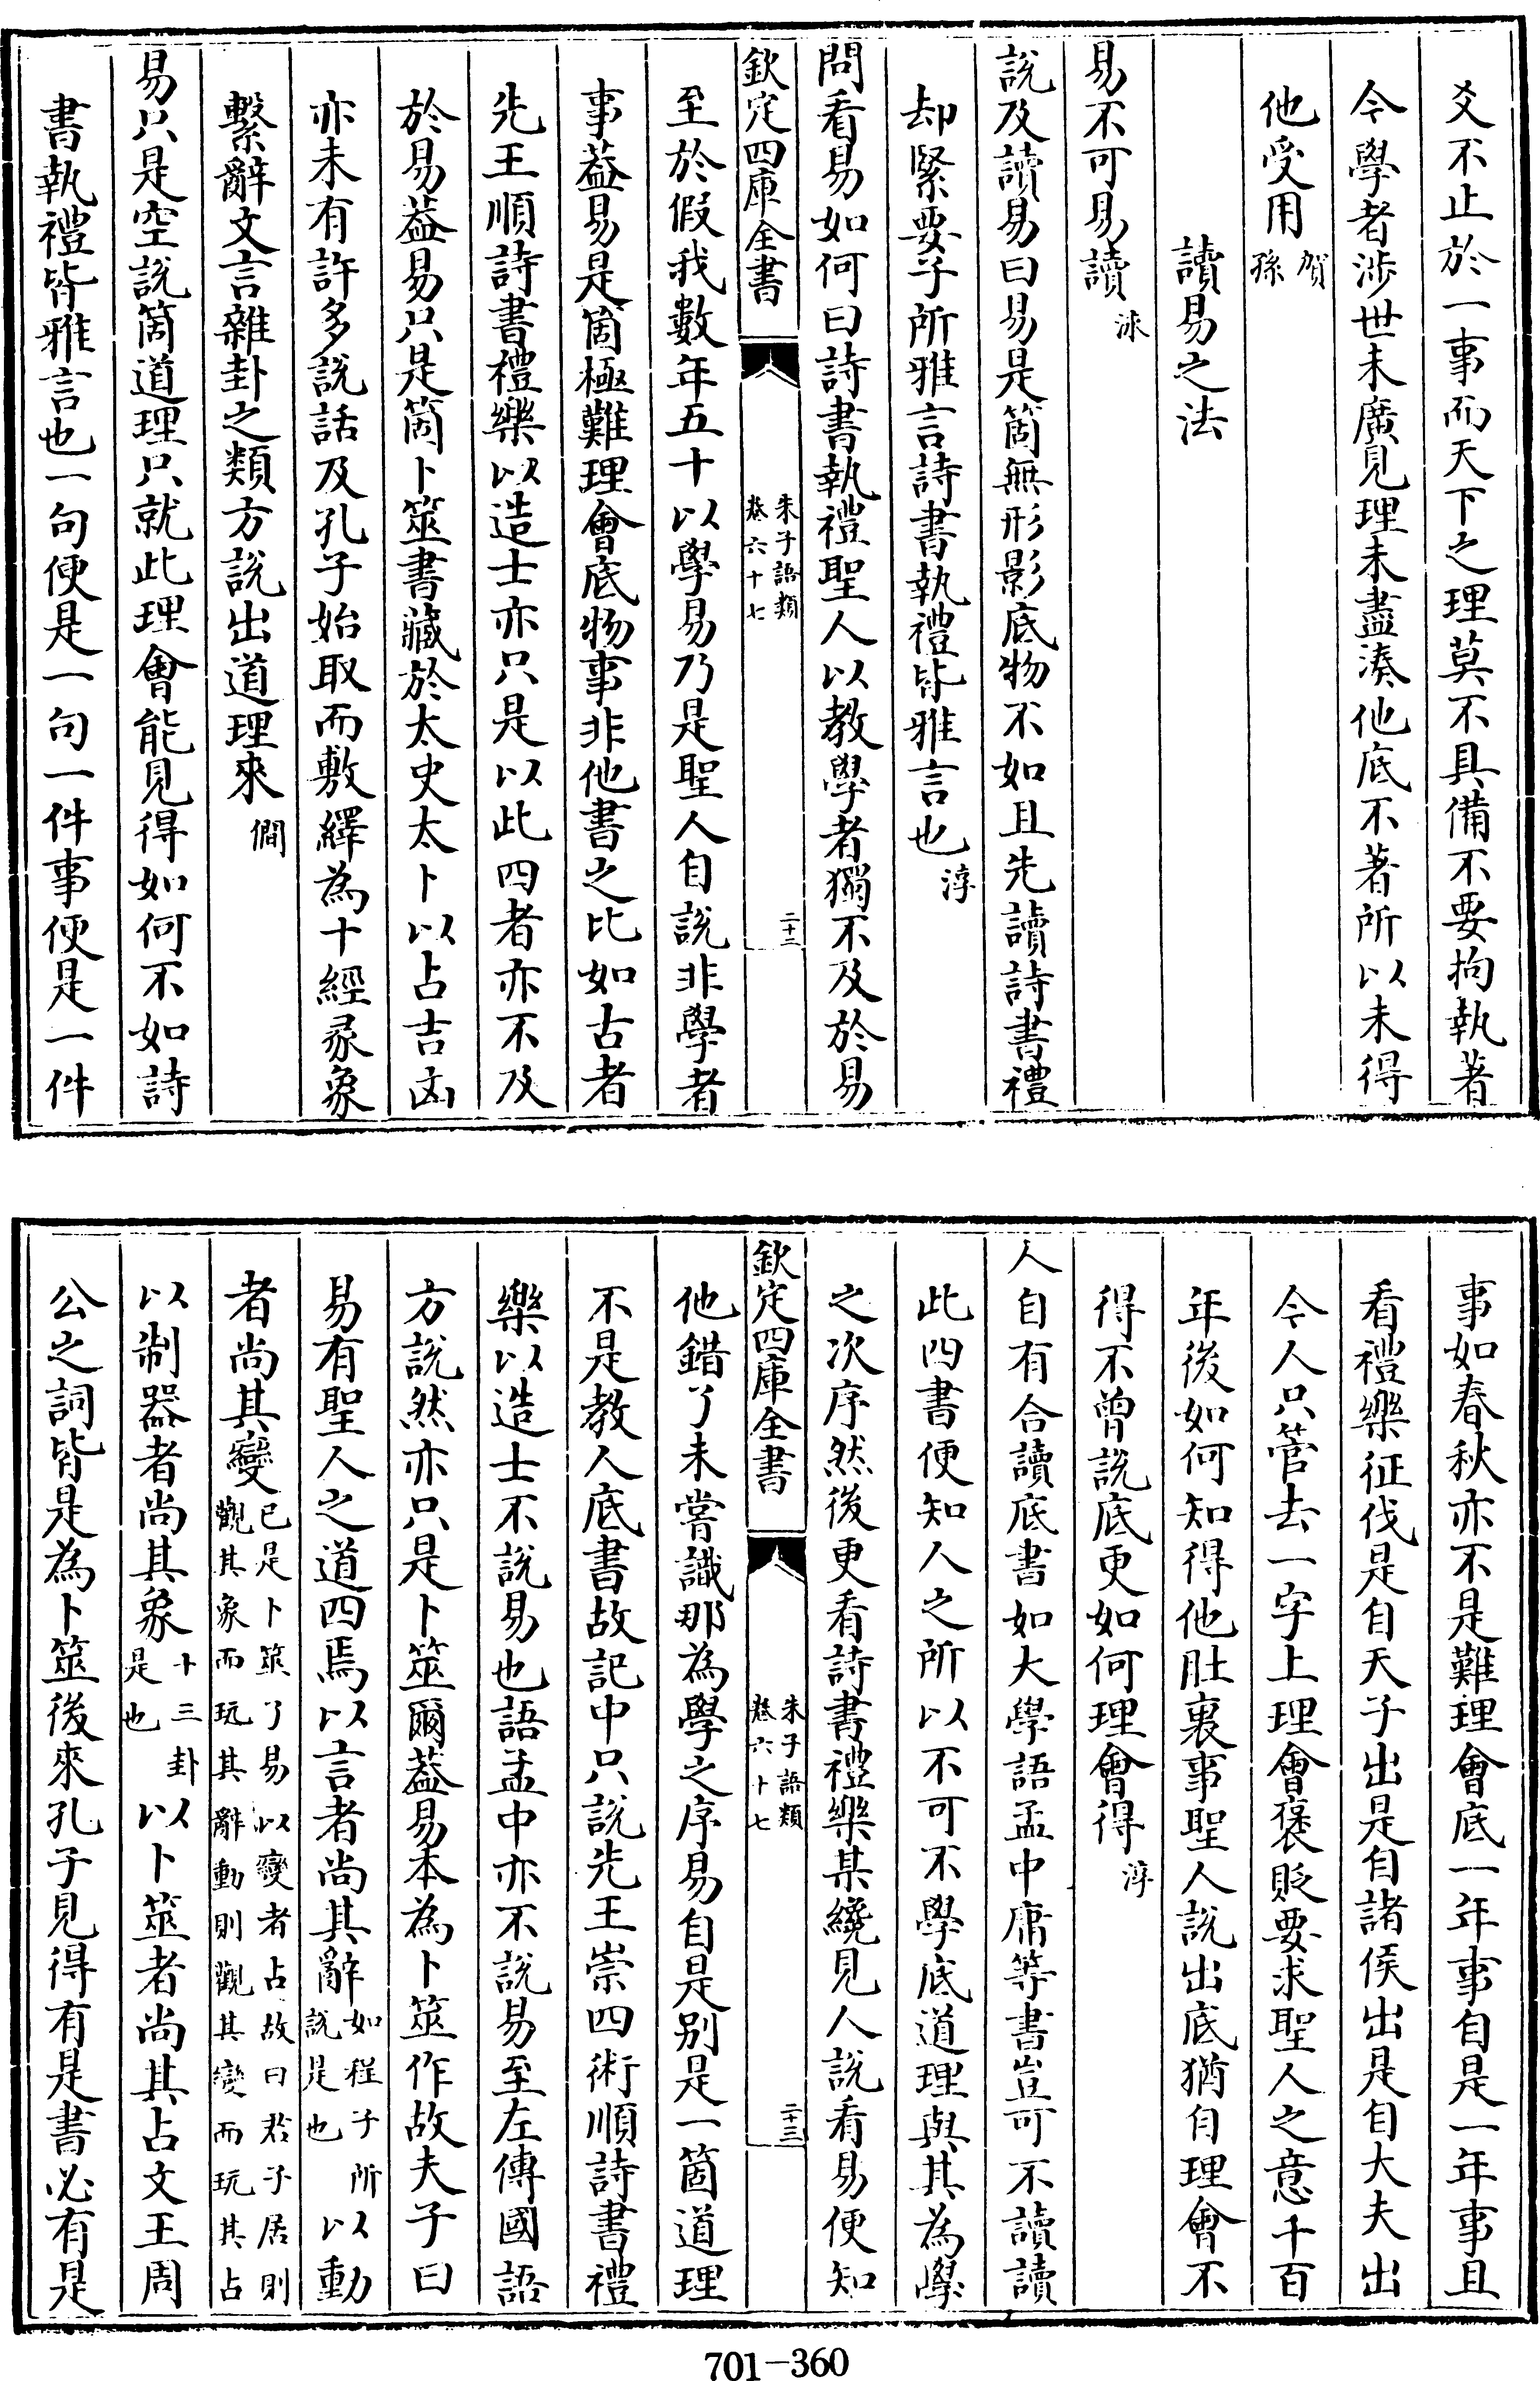 爻不止於一事而天下之理莫不具備不要拘執著
今學者涉世未廣見理未盡湊他底不著所以未得
他受用賀孫
讀易之法
易不可易讀泳
說及讀易曰易是箇無形影底物不如且先讀詩書禮
却緊要子所雅言詩書執禮皆雅言也淳
問看易如何曰詩書執禮聖人以教學者獨不及於易
欽定四庫全書 朱子語類卷六十七 二十二
至於假我數年五十以學易乃是聖人自說非學者
事葢易是箇極難理會底物事非他書之比如古者
先王順詩書禮樂以造士亦只是以此四者亦不及
於易葢易只是箇卜筮書藏於太史太卜以占吉凶
亦未有許多說話及孔子始取而敷繹為十經彖象
繫辭文言雜卦之類方說出道理來僩
易只是空說箇道理只就此理會能見得如何不如詩
書執禮皆雅言也一句便是一句一件事便是一件
事如春秋亦不是難理會底一年事自是一年事且
看禮樂征伐是自天子出是自諸侯出是自大夫出
今人只管去一字上理會褒貶要求聖人之意千百
年後如何知得他肚裏事聖人說出底猶自理會不
得不曾說底更如何理會得淳
人自有合讀底書如大學語孟中庸等書豈可不讀讀
此四書便知人之所以不可不學底道理與其為學
之次序然後更看詩書禮樂某纔見人說看易便知
欽定四庫全書 朱子語類卷六十七 二十三
他錯了未嘗識那為學之序易自是别是一箇道理
不是教人底書故記中只說先王崇四術順詩書禮
樂以造士不說易也語孟中亦不說易至左傳國語
方說然亦只是卜筮爾葢易本為卜筮作故夫子曰
易有聖人之道四焉以言者尚其辭如程子說是也所以動
者尚其變已是卜筮了易以變者占故曰君子居則觀其象而玩其辭動則觀其變而玩其占
以制器者尚其象十三卦是也以卜筮者尚其占文王周
公之詞皆是為卜筮後來孔子見得有是書必有是
701-360